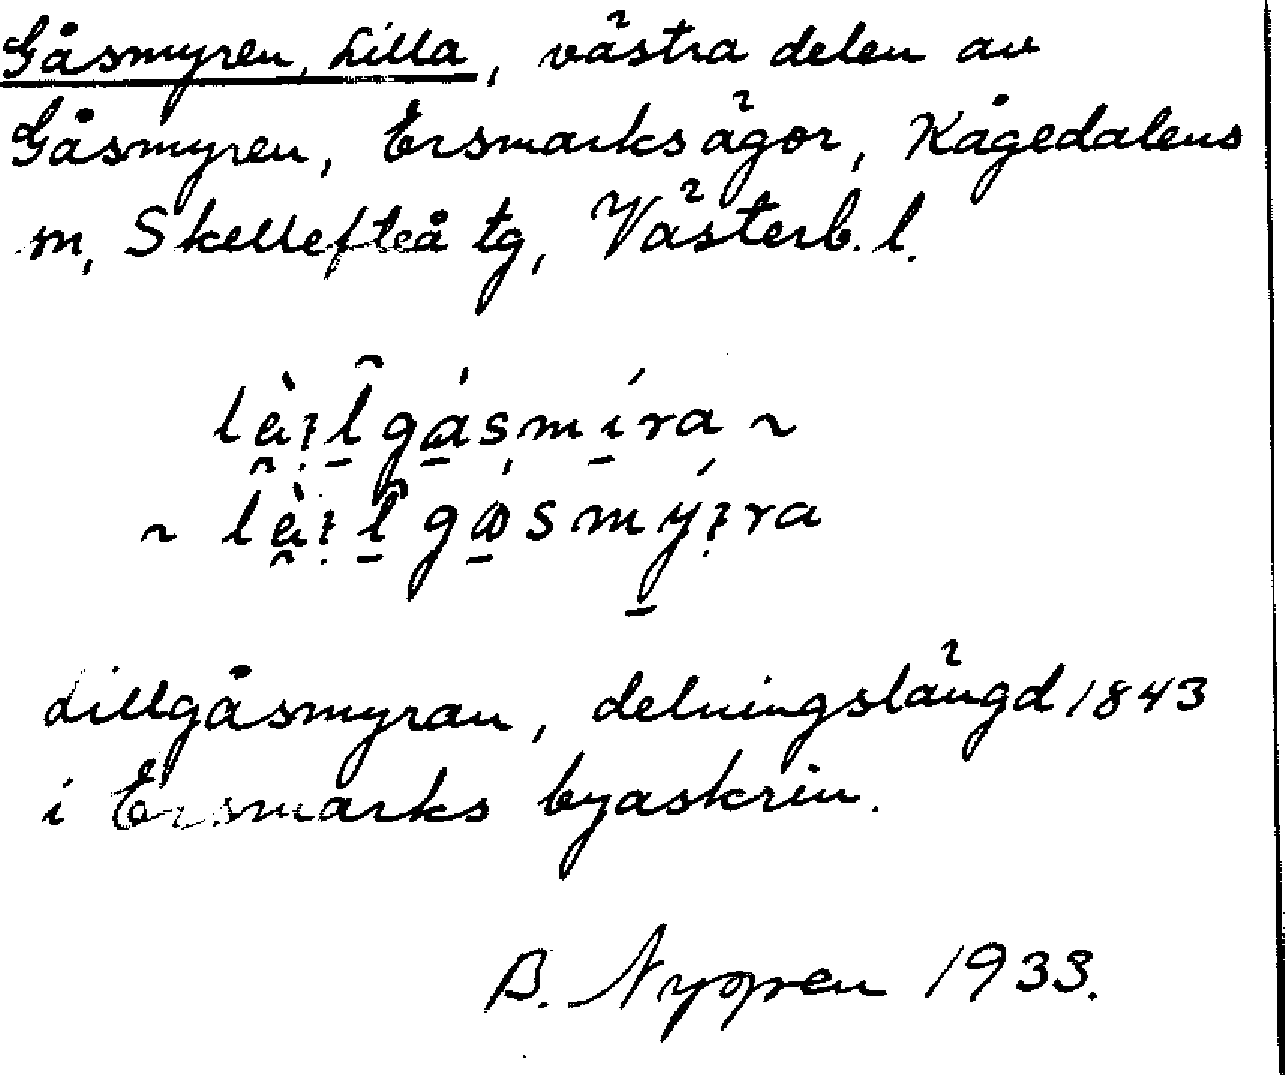 Gåsmyren, Lilla, västra delen av
Gåsmyren, Ersmarks ägor, Kågedalens
m, Skellefteå tg, Västerb. l.
Lillgåsmyran, delningslängd 1843
i Ersmarks byaskrin.
B. Nygren 1933.